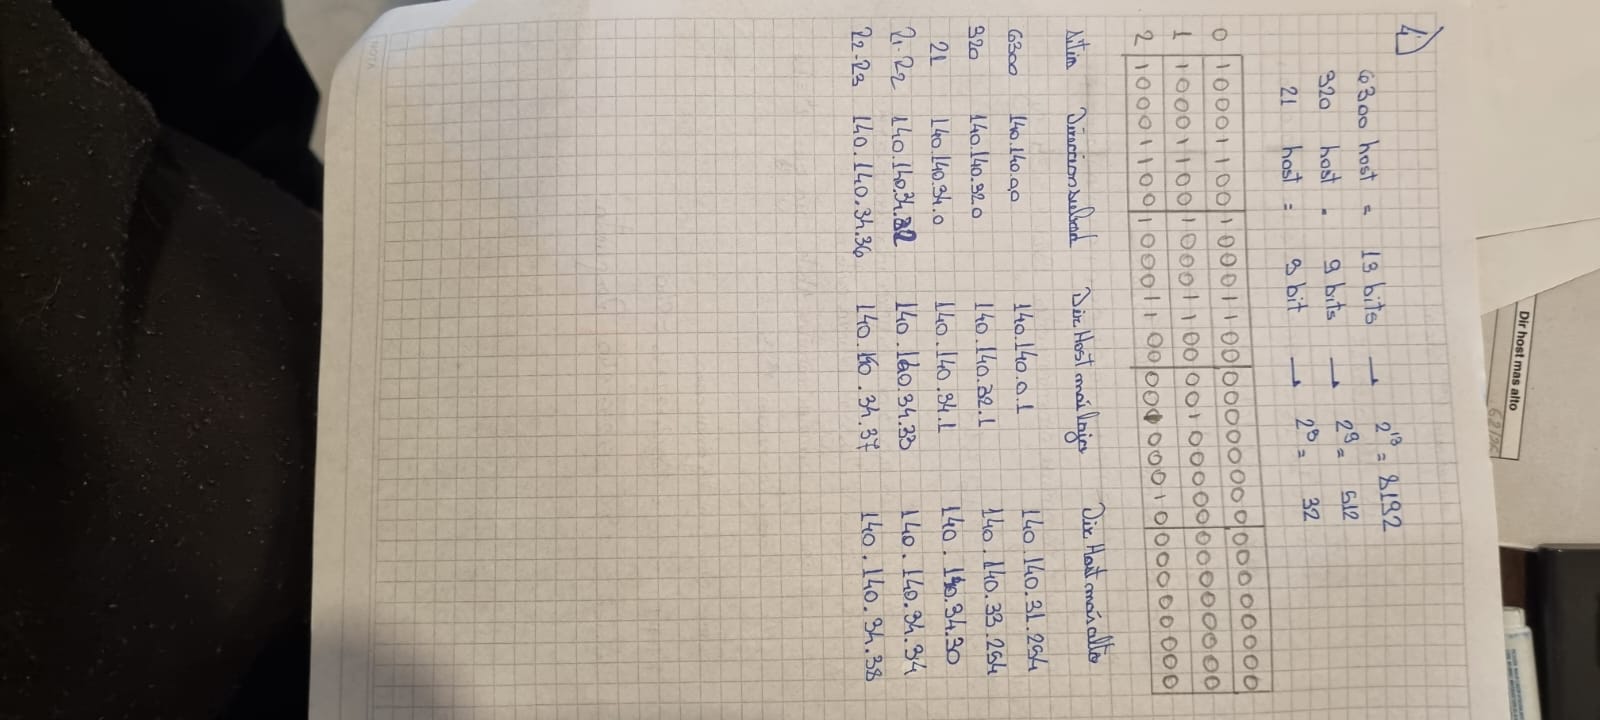 4)
6300 host = 13 bits → 2^13 = 8192
320 host = 9 bits → 2^9 = 512
21 host = 9 bit → 2^9 = 32
0 10001100 10001100 00000000 00000000
1 10001100 10001100 00100000 00000000
2 10001100 10001100 00100010 00000000
Direccion subred Dir Host más bajo Dir Host más alto
6300 140.140.0.0 140.140.0.1 140.140.31.254
320 140.140.32.0 140.140.32.1 140.140.33.254
21 140.140.34.0 140.140.34.1 140.140.34.30
21-22 140.140.34.32 140.140.34.33 140.140.34.34
22-23 140.140.34.36 140.140.34.37 140.140.34.38
Dir host mas alto
NOTA